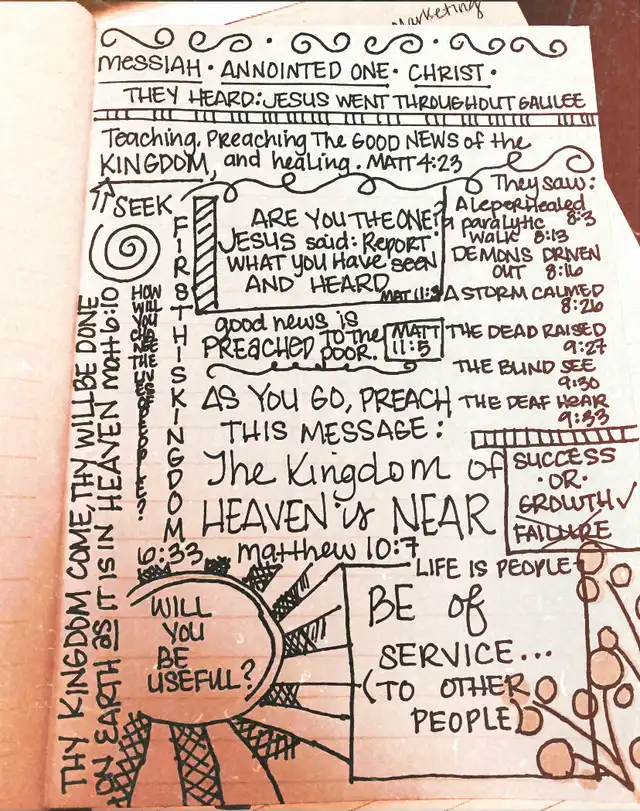 Marketing
MESSIAH · ANNOINTED ONE · CHRIST ·
THEY HEARD: JESUS WENT THROUGHOUT GALILEE
Teaching, Preaching The GOOD NEWS of the
KINGDOM, and healing. MATT 4:23
SEEK
FIRST HIS KINGDOM
6:33
ARE YOU THE ONE?
JESUS said: Report
WHAT YOU Have seen
AND HEARD
MAT 11:3
They saw:
A leper Healed
8:3
a paralytic
walk 8:13
DEMONS DRIVEN
OUT 8:16
A STORM CALMED
8:26
THE DEAD RAISED
9:27
THE BLIND SEE
9:30
THE DEAF HEAR
9:33
good news is
PREACHED TO THE
POOR.
MATT
11:5
HOW
WILL
YOU
CHANGE
THE LIVES
OF PEOPLE?
THY KINGDOM COME, THY WILL BE DONE
ON EARTH as IT IS IN HEAVEN Matt 6:10
AS YOU GO, PREACH
THIS MESSAGE:
The Kingdom of
HEAVEN is NEAR
matthew 10:7
SUCCESS
· OR ·
GROWTH
FAILURE
LIFE IS PEOPLE
BE of
SERVICE...
(TO OTHER
PEOPLE)
WILL
YOU
BE
USEFUL?